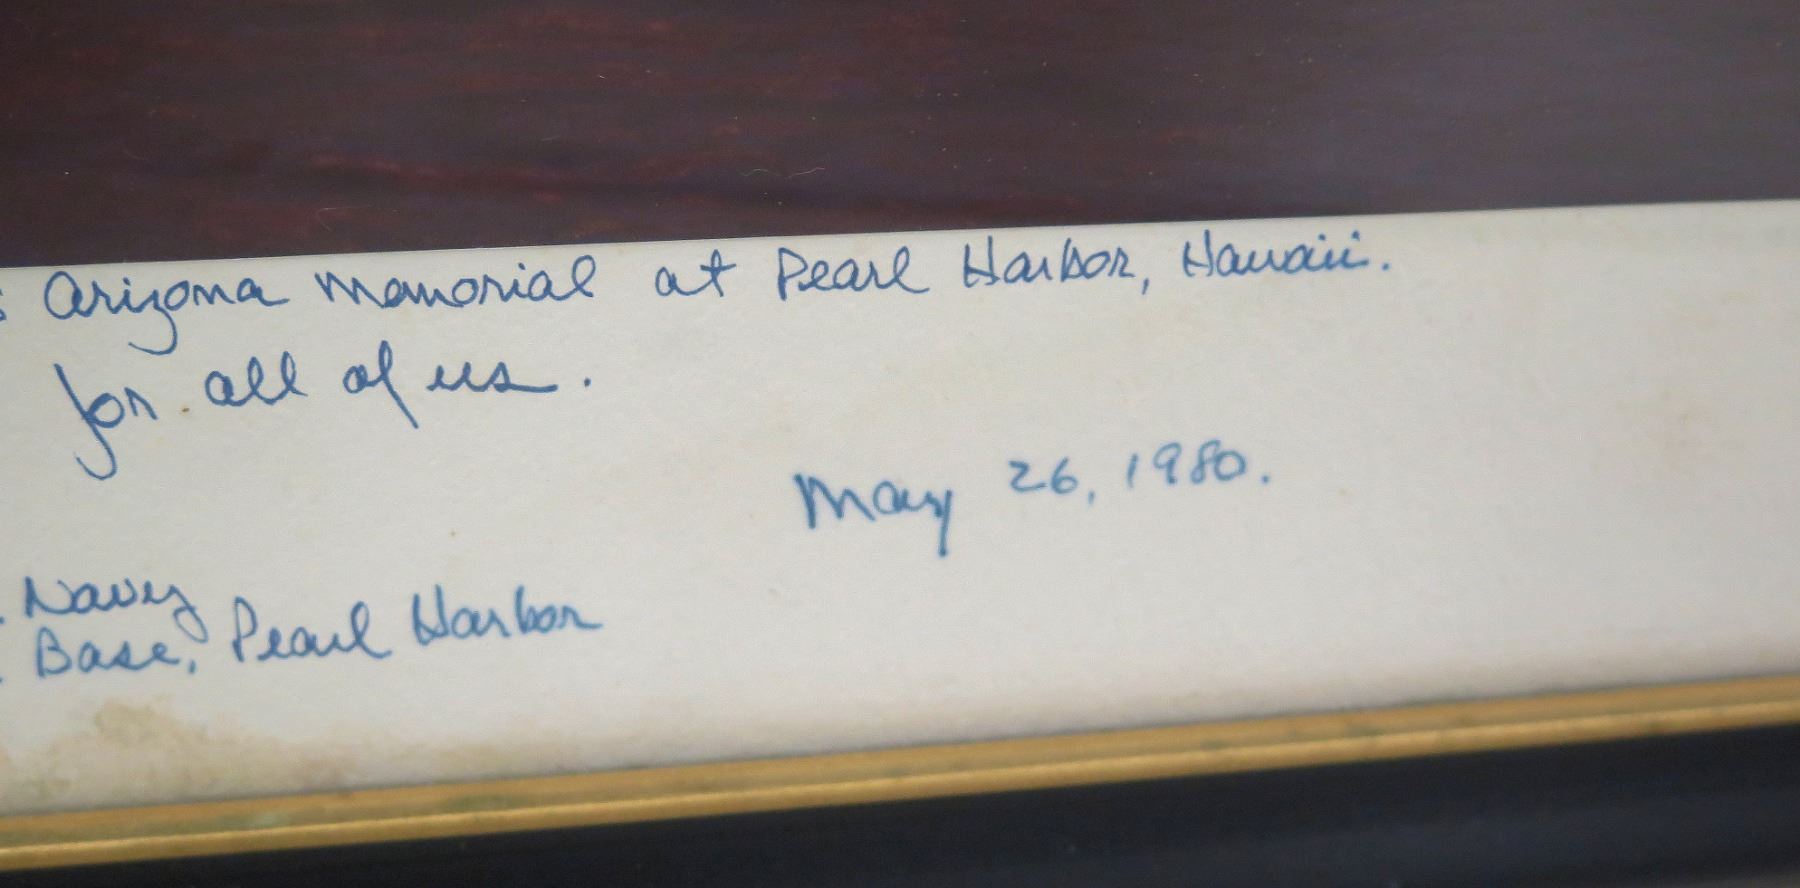 Arizona Memorial at Pearl Harbor, Hawaii.
for all of us.
May 26, 1980.
Navy
Base, Pearl Harbor